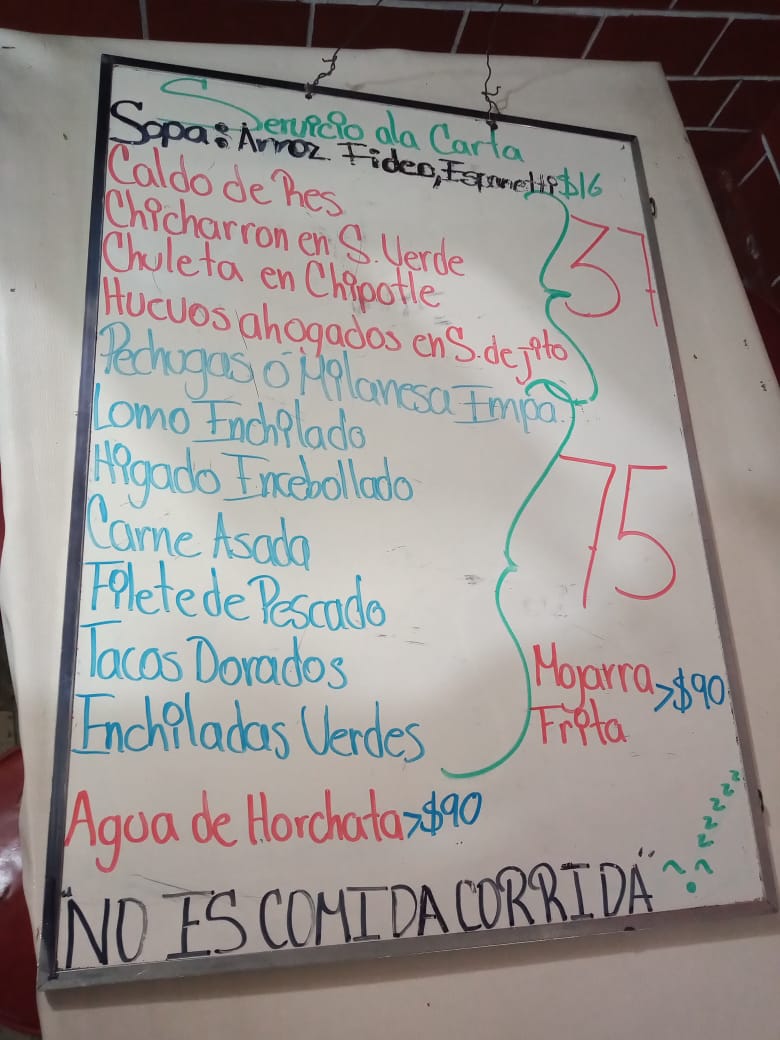 Servicio ala Carta
Sopa: Arroz. Fideo, Espaguetti $16
Caldo de Res
Chicharron en S. Verde
Chuleta en Chipotle
Hucuos ahogados en S. de jito
37
Pechugas ó Milanesa Empa.
Lomo Enchilado
Higado Encebollado
Carne Asada
Filete de Pescado
Tacos Dorados
Enchiladas Verdes
75
Mojarra >$90
Frita
Agua de Horchata >$90
"NO ES COMIDA CORRIDA"